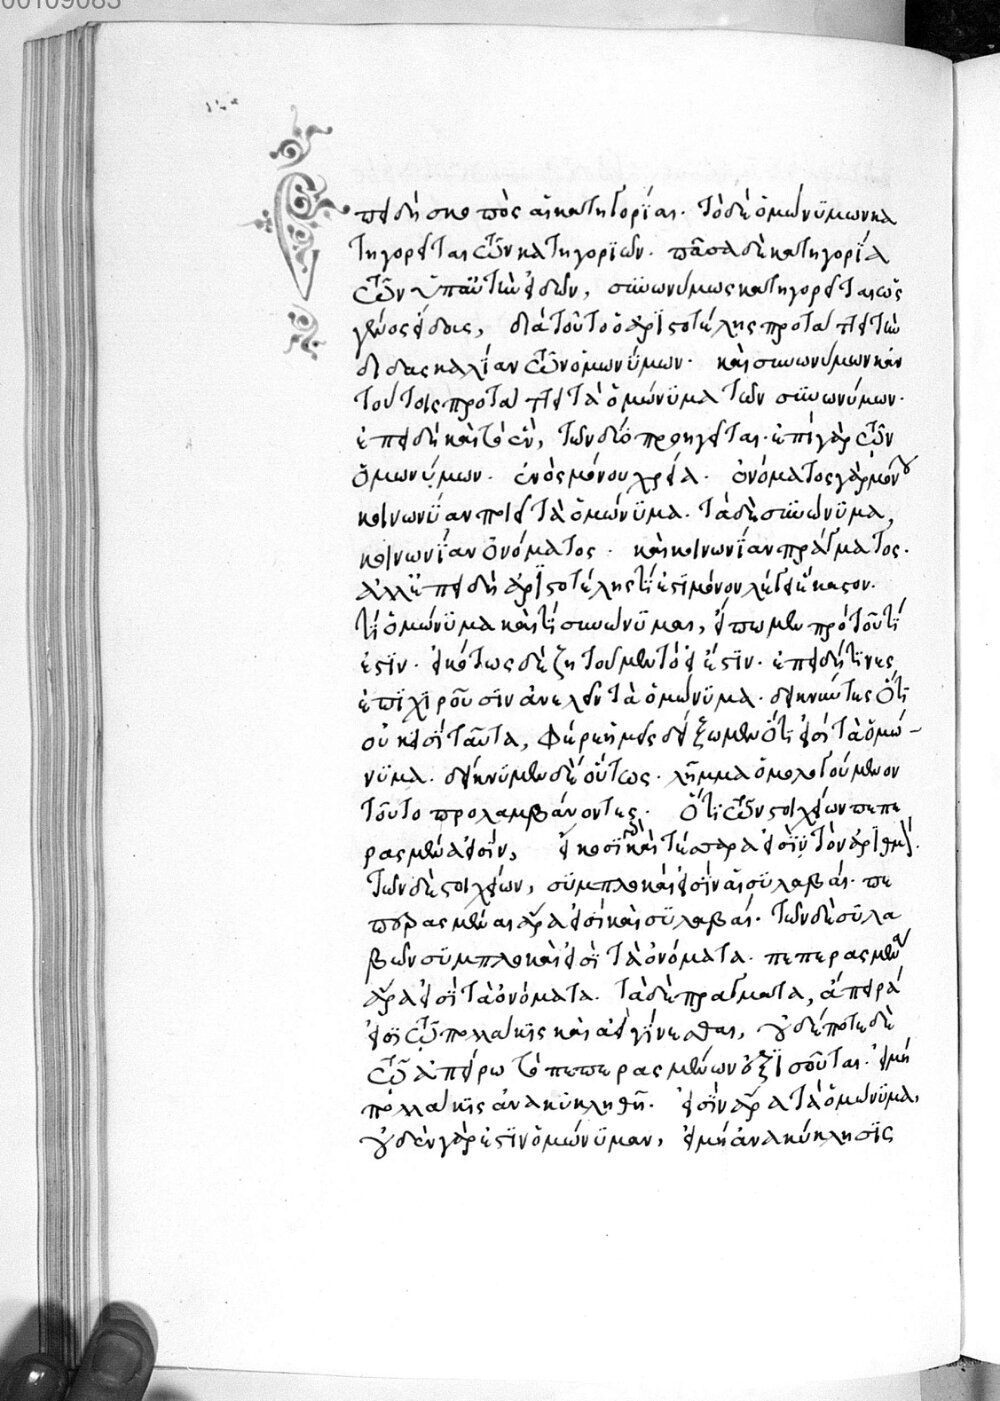 00109083
Ἐπειδὴ σκοπὸς αἱ κατηγορίαι. τὸ δὲ ὁμώνυμον κα
τηγορεῖται τῶν κατηγοριῶν. πᾶσα δὲ κατηγορία
τῶν ὑπ' αὐτὴν εἰδῶν, συνωνύμως κατηγορεῖται ὡς
γένος εἴδεσι, διὰ τοῦτο ὁ ἀριστοτέλης προτάττει τὴν
διδασκαλίαν τῶν ὁμωνύμων. καὶ συνωνύμων κἀν
τούτοις προτάττει τὰ ὁμώνυμα τῶν συνωνύμων.
ἐπειδὴ καὶ τὸ ἓν, τῶν δύο προηγεῖται. ἐπὶ γὰρ τῶν
ὁμωνύμων. ἑνὸς μόνου χρεία. ὀνόματος γὰρ μόνου
κοινωνίαν ποιεῖ τὰ ὁμώνυμα. τὰ δὲ συνώνυμα,
κοινωνίαν ὀνόματος. καὶ κοινωνίαν πράγματος.
ἀλλ' ἐπειδὴ ἀριστοτέλης τί ἐστι μόνον λέγει ἕκαστον.
τί ὁμώνυμα καὶ τί συνώνυμα, εἴπωμεν πρὸ τοῦ τί
ἐστιν. εἰκότως δὲ ζητοῦμεν τὸ εἰ ἔστιν. ἐπειδή τινες
ἐπιχειροῦσιν ἀνελεῖν τὰ ὁμώνυμα. δεικνύντες ὅτι
οὐκ εἰσὶ ταῦτα, φέρε ἡμεῖς δείξωμεν ὅτι εἰσὶ τὰ ὁμώ-
νυμα. δείκνυμεν δὲ οὕτως. λῆμμα ὁμολογούμενον
τοῦτο προλαμβάνοντες. ὅτι τῶν στοιχείων πεπε
ρασμένα εἰσὶν, εἰκοσι καὶ τέσσαρα εἰσὶ τὸν ἀριθμόν.
τῶν δὲ στοιχείων, συμπλοκαί εἰσιν αἱ συλαβαί. πε
περασμέναι ἄρα εἰσὶ καὶ συλαβαί. τῶν δὲ συλα
βῶν συμπλοκαὶ εἰσὶ τὰ ὀνόματα. πεπερασμένα
ἄρα εἰσὶ τὰ ὀνόματα. τὰ δὲ πράγματα, ἄπειρά
εἰσι τῷ πολλάκις καὶ ἀεὶ γίνεσθαι, οὐδέποτε δὲ
τῷ ἀπείρῳ τὸ πεπερασμένων ἐξισοῦται. εἰ μὴ
πολλάκις ἀνακυκληθῇ. εἰσὶν ἄρα τὰ ὁμώνυμα,
οὐδὲν γάρ ἐστιν ὁμώνυμον, εἰ μὴ ἀνακύκλησις